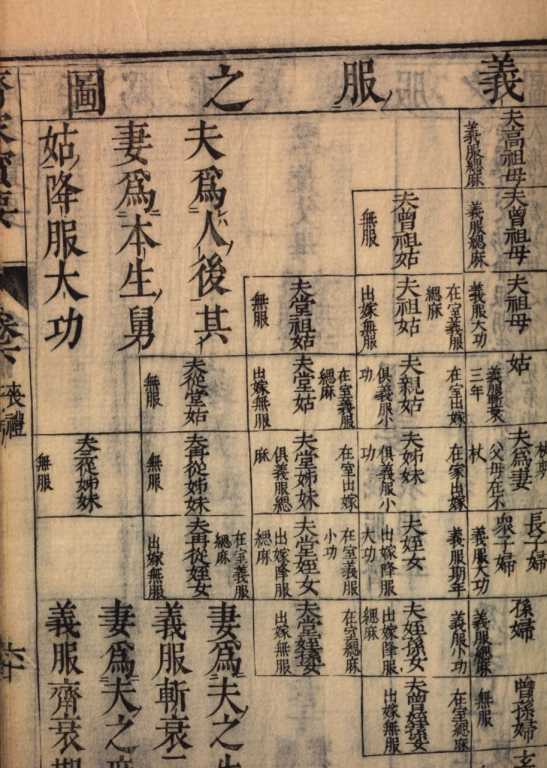 義服之圖
夫高祖母
義服緦麻
夫曾祖母
義服緦麻
夫祖母
義服大功
姑
三年
夫為妻
父母在不
杖
長子婦
衆子婦
義服期年
義服大功
孫婦
義服小功
義服緦麻
曾孫婦
無服
夫曾祖姑
無服
夫祖姑
在室義服
緦麻
出嫁無服
夫親姑
在室出嫁
俱義服小
功
夫姊妹
在室出嫁
俱義服小
功
夫姪女
出嫁降服
大功
夫姪孫女
在室緦麻
出嫁降服
緦麻
夫曾姪孫女
在室緦麻
出嫁無服
夫堂祖姑
無服
夫堂姑
在室義服
緦麻
出嫁無服
夫堂姊妹
在室出嫁
俱義服緦
麻
夫堂姪女
在室義服
小功
出嫁降服
緦麻
夫堂姪孫女
出嫁無服
夫從堂姑
無服
夫再從姊妹
無服
夫再從姪女
在室義服
緦麻
出嫁無服
夫三從姊妹
無服
夫為人後其
妻為本生舅
姑降服大功
妻為夫之
義服斬衰
妻為夫之
義服齊衰期
卷六
喪禮